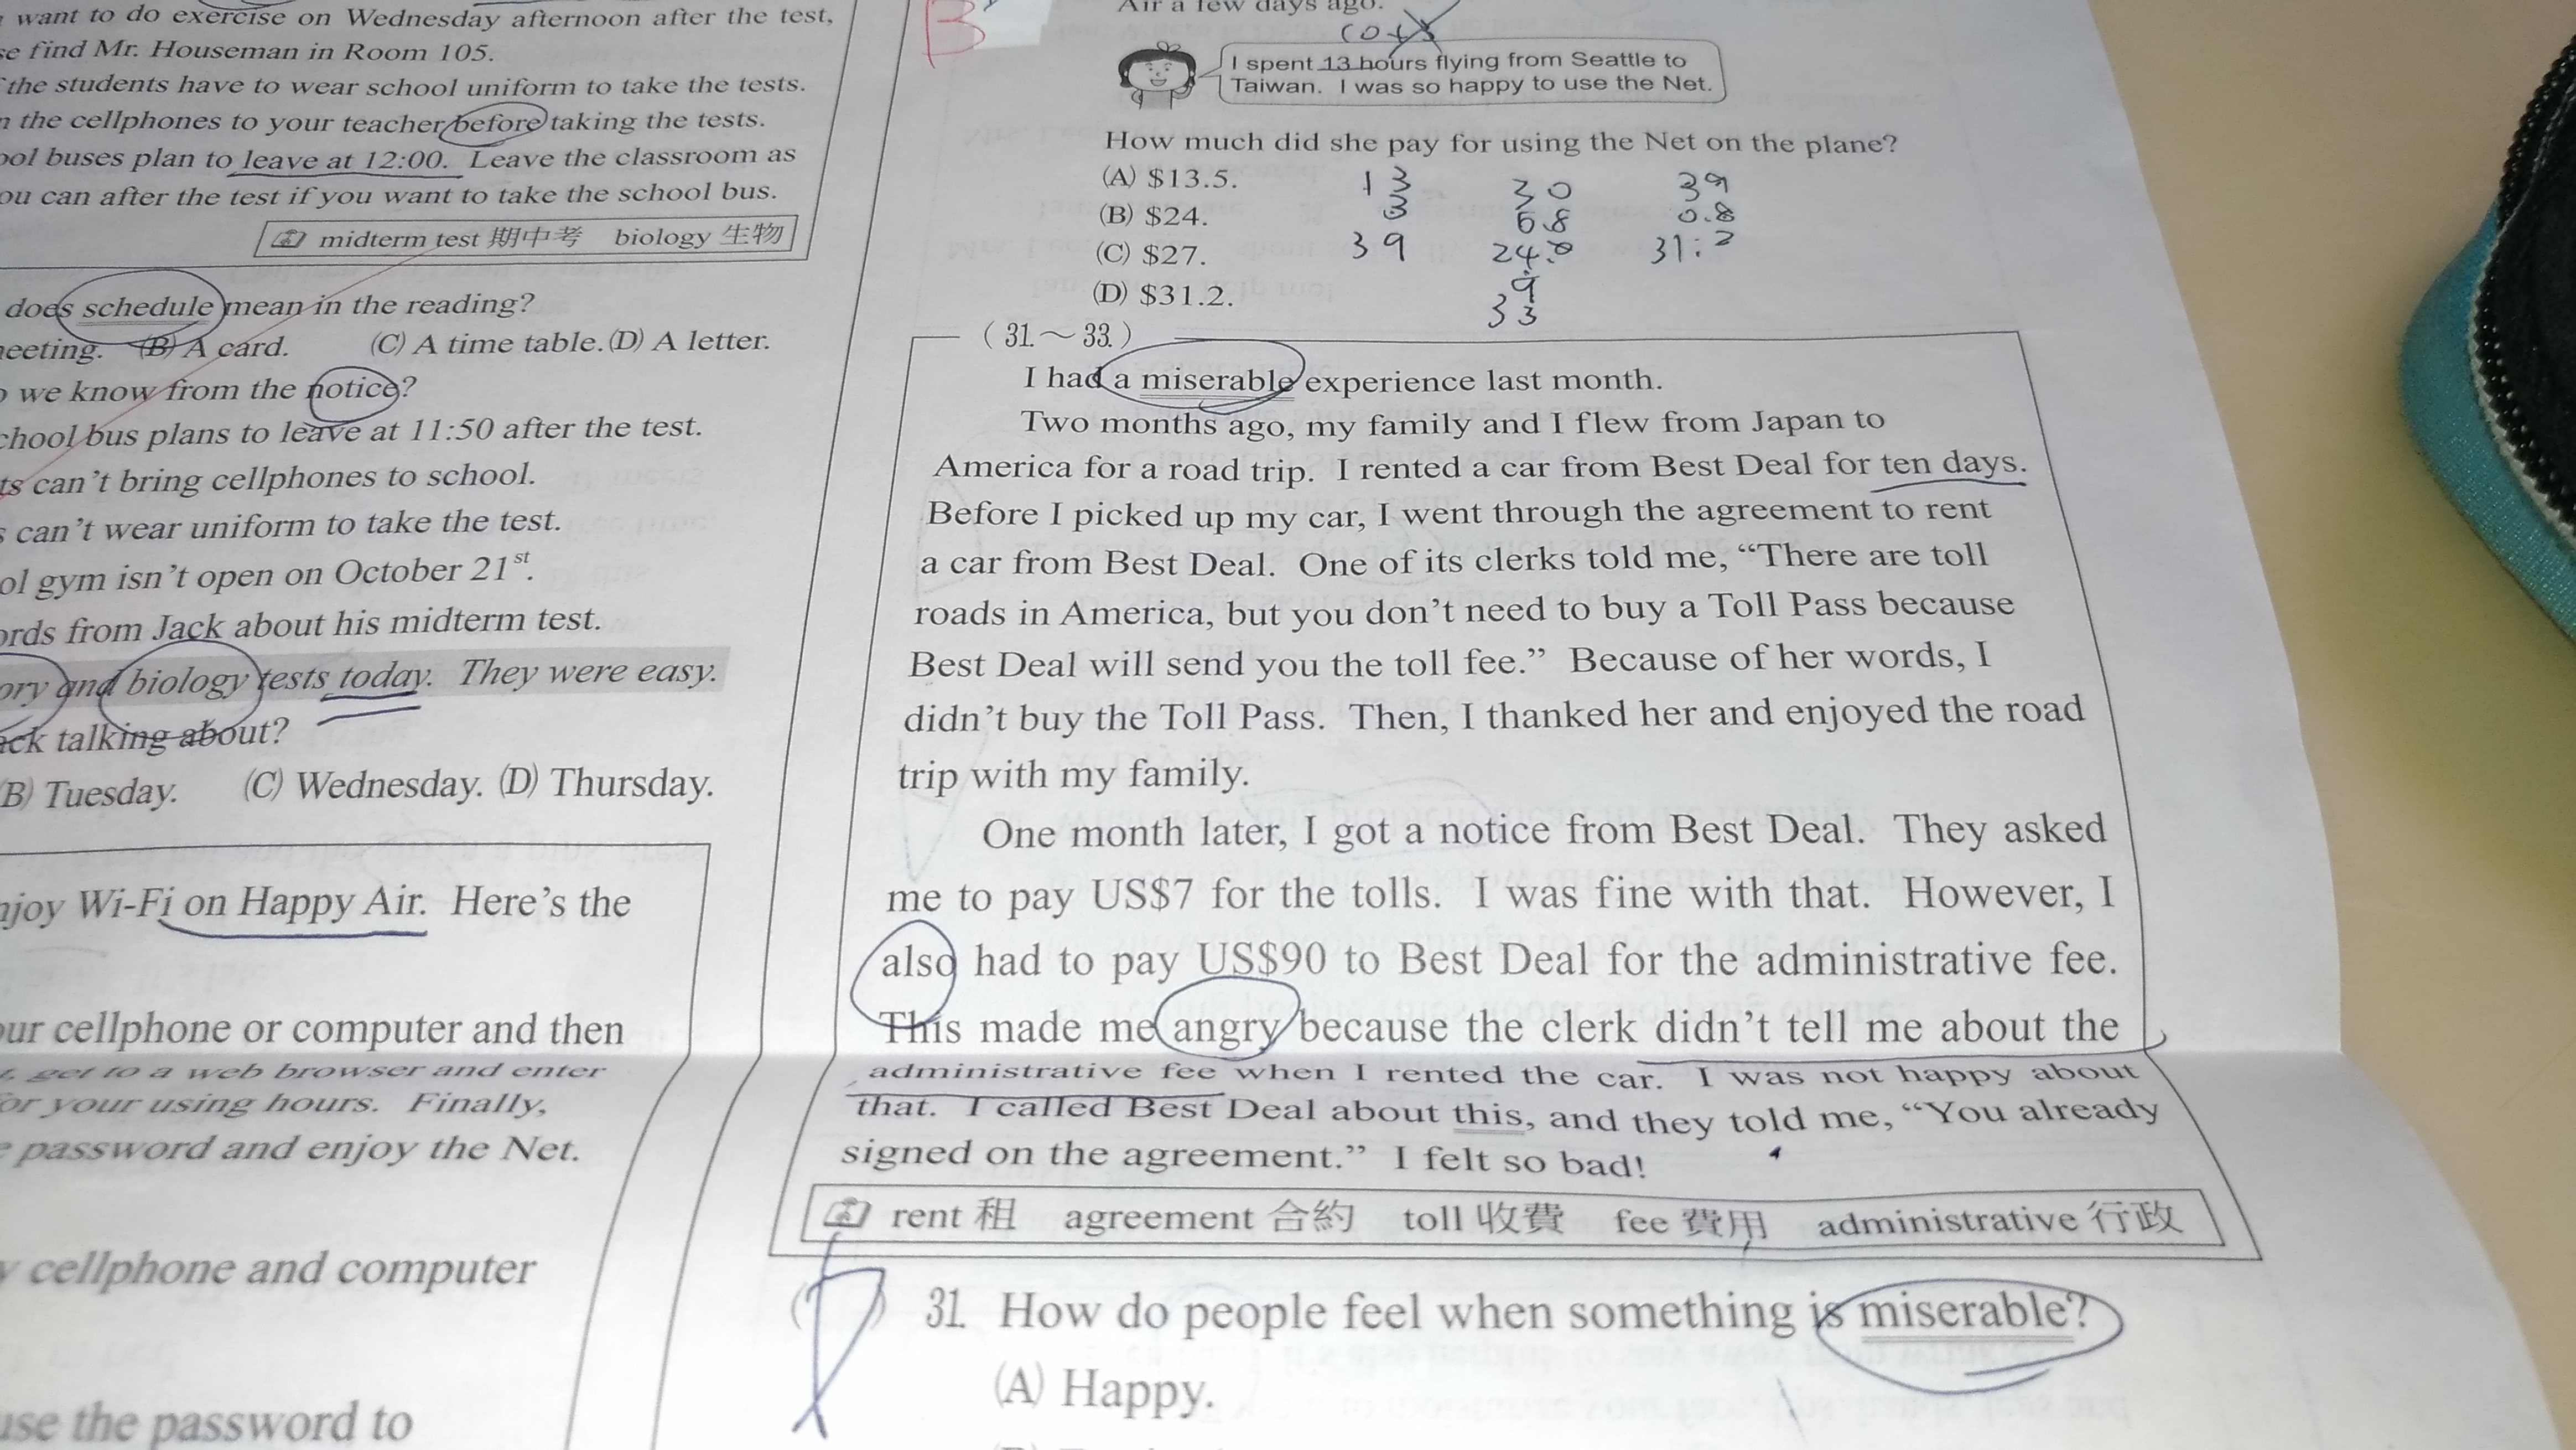 want to do exercise on Wednesday afternoon after the test,
find Mr. Houseman in Room 105.
the students have to wear school uniform to take the tests.
the cellphones to your teacher before taking the tests.
buses plan to leave at 12:00. Leave the classroom as
can after the test if you want to take the school bus.
midterm test 期中考 biology 生物
does schedule mean in the reading?
(B) A card. (C) A time table. (D) A letter.
we know from the notice?
bus plans to leave at 11:50 after the test.
can't bring cellphones to school.
can't wear uniform to take the test.
gym isn't open on October 21st.
from Jack about his midterm test.
and biology tests today. They were easy.
talking about?
(B) Tuesday. (C) Wednesday. (D) Thursday.
Wi-Fi on Happy Air. Here's the
cellphone or computer and then
get to a web browser and enter
your using hours. Finally,
password and enjoy the Net.
cellphone and computer
the password to
B
Air a few days ago.
I spent 13 hours flying from Seattle to
Taiwan. I was so happy to use the Net.
How much did she pay for using the Net on the plane?
(A) $13.5. 13 30 39
(B) $24. 3 0.8
(C) $27. 39 31.2
(D) $31.2. 9
33
(31.～33.)
I had a miserable experience last month.
Two months ago, my family and I flew from Japan to
America for a road trip. I rented a car from Best Deal for ten days.
Before I picked up my car, I went through the agreement to rent
a car from Best Deal. One of its clerks told me, “There are toll
roads in America, but you don't need to buy a Toll Pass because
Best Deal will send you the toll fee.” Because of her words, I
didn't buy the Toll Pass. Then, I thanked her and enjoyed the road
trip with my family.
One month later, I got a notice from Best Deal. They asked
me to pay US$7 for the tolls. I was fine with that. However, I
also had to pay US$90 to Best Deal for the administrative fee.
This made me angry because the clerk didn't tell me about the
administrative fee when I rented the car. I was not happy about
that. I called Best Deal about this, and they told me, “You already
signed on the agreement.” I felt so bad!
rent 租 agreement 合約 toll 收費 fee 費用 administrative 行政
31. How do people feel when something is miserable?
(A) Happy.